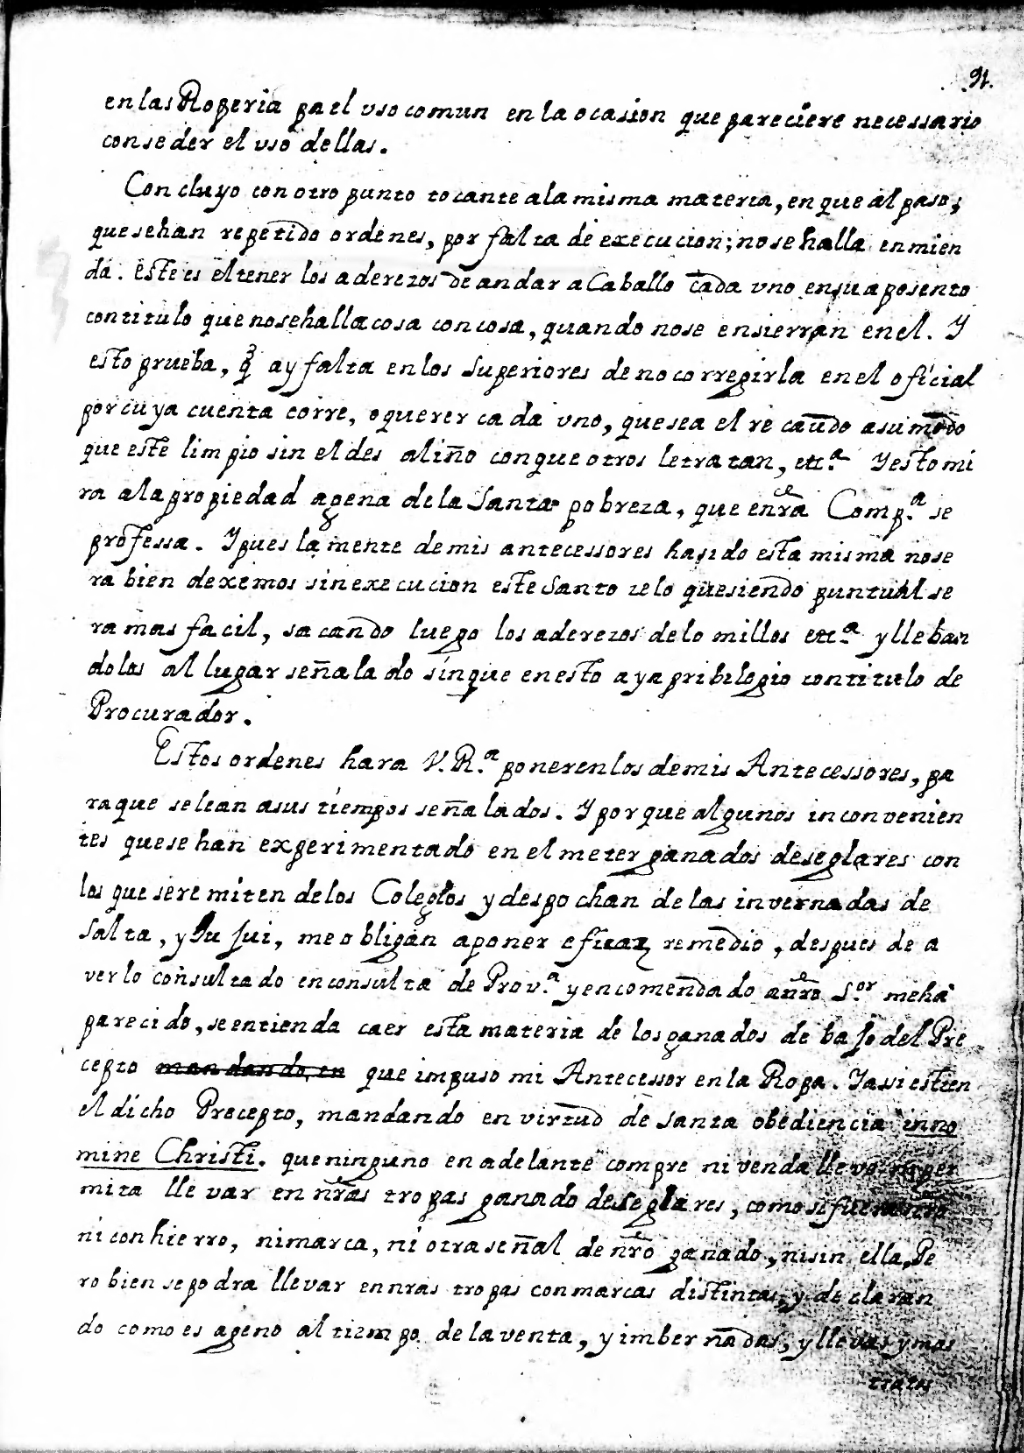 91.
en las Roperia pa el uso comun en la ocasion que pareciere necessario
conseder el uso dellas.
Concluyo con otro punto tocante a la misma materia, en que al paso,
que se han repetido ordenes, por falta de execucion; no se halla enmien
da. Este es el tener los aderezos de andar a Caballo cada uno en su aposento
con titulo que no se halla cosa con cosa, quando no se ensierran en el. Y
esto prueba, q̃ ay falta en los Superiores de no corregirla en el oficial
por cuya cuenta corre, o querer cada uno, que sea el recaudo a su modo
que este limpio sin el desaliño con que otros le tratan, etc.ª Y esto mi
ra a la propiedad agena de la Santa pobreza, que en nr̃a Comp.ª se
professa. Y pues la mente de mis antecessores ha sido esta misma no se
ra bien dexemos sin execucion este Santo zelo que siendo puntual se
ra mas facil, sacando luego los aderezos de lomillos etc.ª y lleban
dolos al lugar señalado sin que en esto aya pribilegio con titulo de
Procurador.
Estos ordenes hara V.R.ª poner en los de mis Antecessores, pa
ra que se lean a sus tiempos señalados. Y por que algunos inconvenien
tes que se han experimentado en el meter ganados de seglares con
los que se remiten de los Colegios y despachan de las invernadas de
Salta, y Ju Jui, me obligan a poner eficaz remedio, despues de a
verlo consultado en consulta de Prov.ª y encomendado a nr̃o S.or me ha
parecido, se entienda caer esta materia de los ganados de bajo del Pre
cepto mandando, en que impuso mi Antecessor en la Ropa. Y assi estien
el dicho Precepto, mandando en virtud de santa obediencia in no
mine Christi. que ninguno en adelante compre ni venda lleve ni per
mita llevar en nr̃as tropas ganado de seglares, como si fuera nr̃o
ni con hierro, ni marca, ni otra señal de nr̃o ganado, ni sin ella, Pe
ro bien se podra llevar en nras tropas con marcas distintas, y declaran
do como es ageno al tiempo de la venta, y imbernadas, y llevar y mas